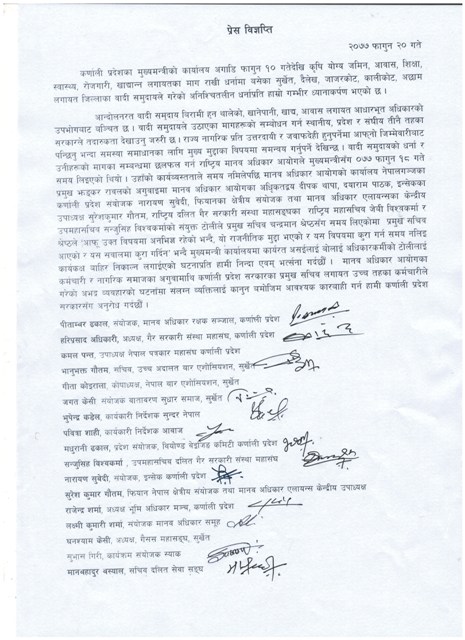 प्रेस विज्ञप्ति
२०७७ फागुन २० गते
कर्णाली प्रदेशका मुख्यमन्त्रीको कार्यालय अगाडि फागुन १० गतेदेखि कृषि योग्य जमिन, आवास, शिक्षा,
स्वास्थ्य, रोजगारी, खाद्यान्न लगायतका माग राखी धर्नामा बसेका सुर्खेत, दैलेख, जाजरकोट, कालीकोट, अछाम
लगायत जिल्लाका वादी समुदायले गरेको अनिश्चितकालीन धर्नाप्रति हाम्रो गम्भीर ध्यानाकर्षण भएको छ ।
आन्दोलनरत वादी समुदाय बिरामी हुन थालेको, खानेपानी, खाद्य, आवास लगायत आधारभूत अधिकारको
उपभोगबाट वञ्चित छ । वादी समुदायले उठाएका मागहरूको सम्बोधन गर्न स्थानीय, प्रदेश र संघीय तीनै तहका
सरकारले तदारुकता देखाउनु जरुरी छ । राज्य नागरिक प्रति उत्तरदायी र जवाफदेही हुनुपर्नेमा आफ्नो जिम्मेवारीबाट
पन्छिनु भन्दा समस्या समाधानका लागि मुख्य मुद्दाका विषयमा समन्वय गर्नुपर्ने देखिन्छ । वादी समुदायको धर्ना र
उनीहरूको मागका सम्बन्धमा छलफल गर्न राष्ट्रिय मानव अधिकार आयोगले मुख्यमन्त्रीसँग ०७७ फागुन १८ गते
समय लिइएको थियो । उहाँको कार्यव्यस्तताले समय नमिलेपछि मानव अधिकार आयोगको कार्यालय नेपालगञ्जका
प्रमुख झङ्कर रावलको अगुवाइमा मानव अधिकार आयोगका अधिकृतद्वय दीपक थापा, दयाराम पाठक, इन्सेकका
कर्णाली प्रदेश संयोजक नारायण सुवेदी, फियानका क्षेत्रीय संयोजक तथा मानव अधिकार एलायन्सका केन्द्रीय
उपाध्यक्ष सुरेशकुमार गौतम, राष्ट्रिय दलित गैर सरकारी संस्था महासङ्घका राष्ट्रिय महासचिव जेवी विश्वकर्मा र
उपमहासचिव सन्जुसिंह विश्वकर्माको संयुक्त टोलीले प्रमुख सचिव चन्द्रमान श्रेष्ठसँग समय लिएकोमा प्रमुख सचिव
श्रेष्ठले 'आफू उक्त विषयमा अनभिज्ञ रहेको भन्दै, यो राजनीतिक मुद्दा भएको र यस विषयमा कुरा गर्न समय नलिइ
आएको र यस सवालमा कुरा गर्दिन' भन्दै मुख्यमन्त्री कार्यालयमा कार्यरत असईलाई बोलाई अधिकारकर्मीको टोलीलाई
कार्यकक्ष बाहिर निकाल्न लगाईएको घटनाप्रति हामी निन्दा एवम् भर्त्सना गर्दछौं । मानव अधिकार आयोगका
कर्मचारी र नागरिक समाजका अगुवामाथि कर्णाली प्रदेश सरकारका प्रमुख सचिव लगायत उच्च तहका कर्मचारीले
गरेको अभद्र व्यवहारको घटनामा संलग्न व्यक्तिलाई कानुन बमोजिम आवश्यक कारवाही गर्न हामी कर्णाली प्रदेश
सरकारसँग अनुरोध गर्दछौं ।
पीताम्बर ढकाल, संयोजक, मानव अधिकार रक्षक सञ्जाल, कर्णाली प्रदेश
हरिप्रसाद अधिकारी, अध्यक्ष, गैर सरकारी संस्था महासंघ, कर्णाली प्रदेश
कमल पन्त, उपाध्यक्ष नेपाल पत्रकार महासंघ कर्णाली प्रदेश
भानुभक्त गौतम, सचिव, उच्च अदालत बार एशोसियशन, सुर्खेत
गीता कोइराला, कोषाध्यक्ष, नेपाल बार एशोसियशन, सुर्खेत
जगत केसी संयोजक वातावरण सुधार समाज, सुर्खेत
भुपेन्द्र कडेल, कार्यकारी निर्देशक सुन्दर नेपाल
पवित्रा शाही, कार्यकारी निर्देशक आवाज
मधुरानी ढकाल, प्रदेश संयोजक, वियोण्ड बेइजिङ कमिटी कर्णाली प्रदेश
सन्जुसिंह विश्वकर्मा , उपमहासचिव दलित गैर सरकारी संस्था महासंघ
नारायण सुवेदी, संयोजक, इन्सेक कर्णाली प्रदेश
सुरेश कुमार गौतम, फियान नेपाल क्षेत्रीय संयोजक तथा मानव अधिकार एलायन्स केन्द्रीय उपाध्यक्ष
राजेन्द्र शर्मा, अध्यक्ष भुमि अधिकार मञ्च, कर्णाली प्रदेश
लक्ष्मी कुमारी शर्मा, संयोजक मानव अधिकार समूह
घनश्याम केसी, अध्यक्ष, गैसस महासङ्घ, सुर्खेत
सुभास गिरी, कार्यक्रम संयोजक स्याक
मानबहादुर थस्याल, सचिव दलित सेवा सङ्घ